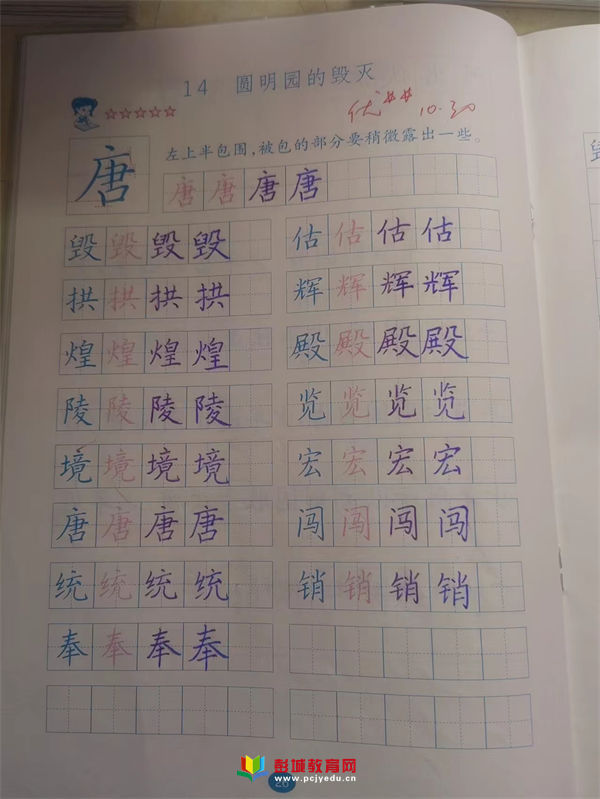 14 圆明园的毁灭
优 10.30
唐 左上半包围,被包的部分要稍微露出一些。
唐 唐 唐 唐
毁 毁 毁 毁 估 估 估 估
拱 拱 拱 拱 辉 辉 辉 辉
煌 煌 煌 煌 殿 殿 殿 殿
陵 陵 陵 陵 览 览 览 览
境 境 境 境 宏 宏 宏 宏
唐 唐 唐 唐 闯 闯 闯 闯
统 统 统 统 销 销 销 销
奉 奉 奉 奉
彭城教育网
www.pcjyedu.cn